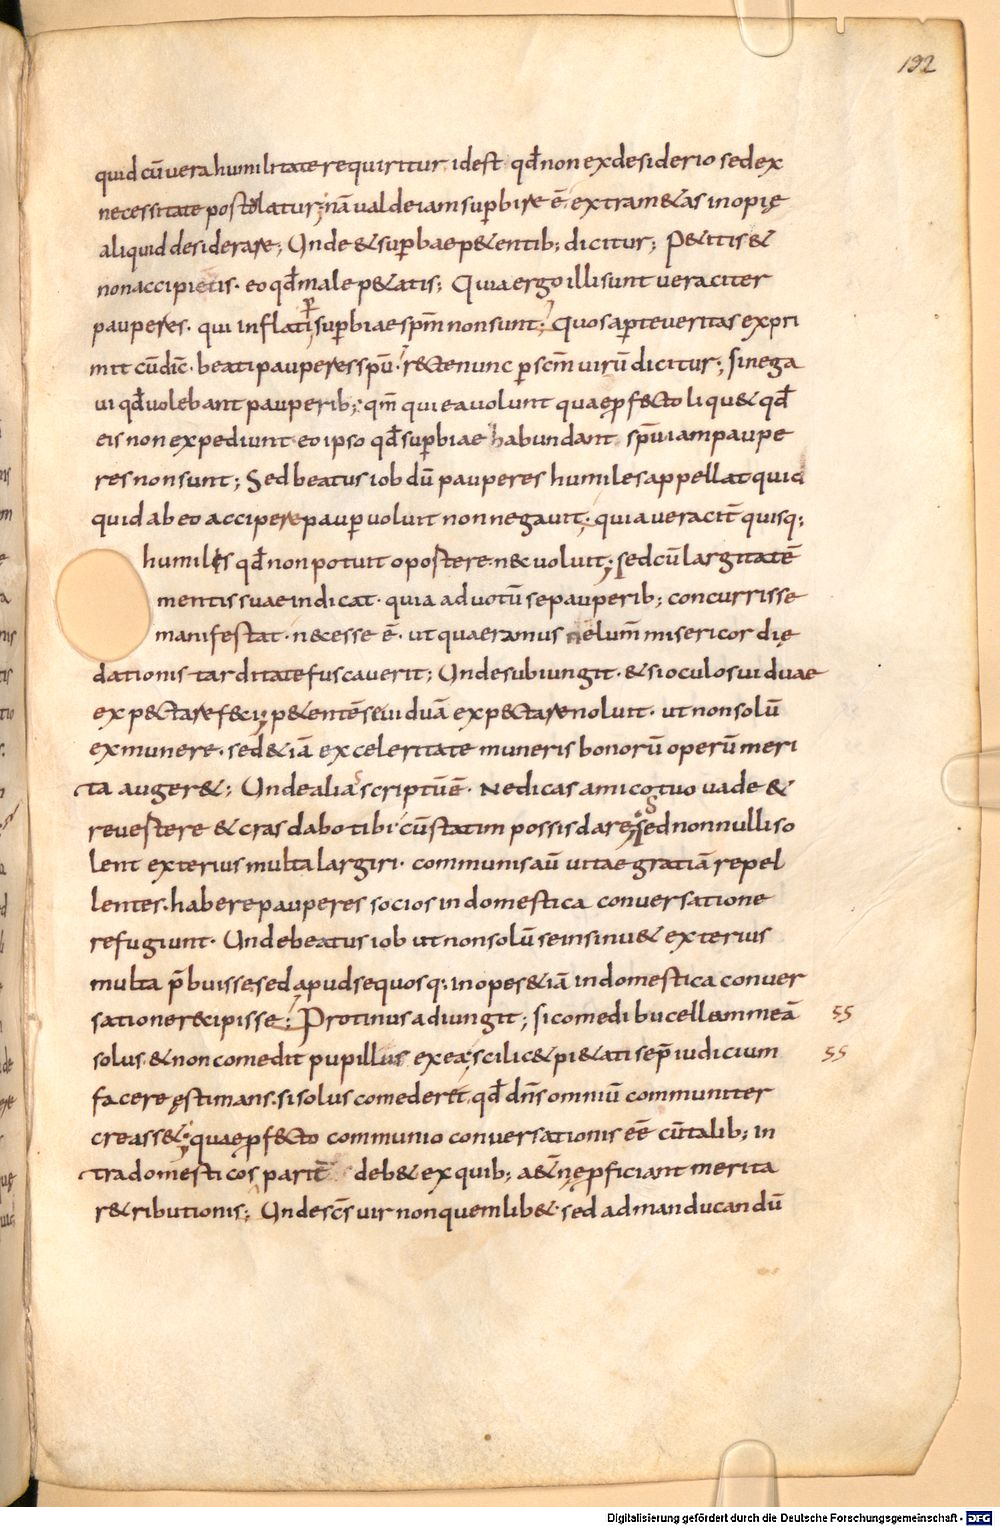 192
quid cū vera humilitate requiritur idest qđ non ex desiderio sed ex
necessitate postolatur; nā valde iam sup̄bire ē, extram & as inopię
aliquid desiderare; Unde & sup̄bae p&entib; dicitur; P&itis &
non accipietis. eo qđ male p&atis; Quia ergo illi sunt veraciter
pauperes. qui inflati sup̄biae sp̄m non sunt; Quos aperte veritas expri
mit cū dic̄. beati pauperes sp̄u. recte nunc p scm̄ virū dicitur; si nega
vi qđ volebant pauperib; qm̄ qui ea volunt quae p̄fecto liqu& qđ
eis non expediunt eo ipso qđ sup̄biae habundant sp̄u iam paupe
res non sunt; Sed beatus iob dū pauperes humiles appellat quid
quid ab eo accipere pauper voluit non negavit; quia veracit̄ quisq;
humiles qđ non potuit opostere. nec voluit; sed cū largitatē
mentis suae indicat. quia ad votū se pauperib; concurrisse
manifestat. necesse ē. ut quaeramus ne lum̄ misericordię
dationis tarditate fuscaverit; Unde subiungit. & si oculos viduae
expectare feci; p&entē se viduā expectare noluit. ut non solū
ex munere. sed &iā ex celeritate muneris bonorū operū meri
ta auger&; Unde alias scriptū ē. Ne dicas amico tuo vade &
revestere & cras dabo tibi. cū statim possis dare; sed nonnulli so
lent exterius multa largiri. communis aū vitae gratiā repel
lentes. habere pauperes socios in domestica conversatione
refugiunt. Unde beatus iob ut non solū se insinu& exterius
multa p̄buisse sed apud se quosq; inopes &iā in domestica conver
satione recipisse; Protinus adiungit; si comedi bucellam meā 55
solus & non comedit pupillus ex ea; scilic& pi&ati se p̄iudicium 55
facere ęstimans. si solus comeder&. qđ dn̄s omniū communiter
creass&; quae p̄fecto communio conversationis eē cū talib; in
tra domesticos pariet̄ deb& ex quib; a&n̄ę pficiant merita
r&ributionis; Unde sc̄s vir non quemlib&. sed ad manducandū
Digitalisierung gefördert durch die Deutsche Forschungsgemeinschaft - DFG